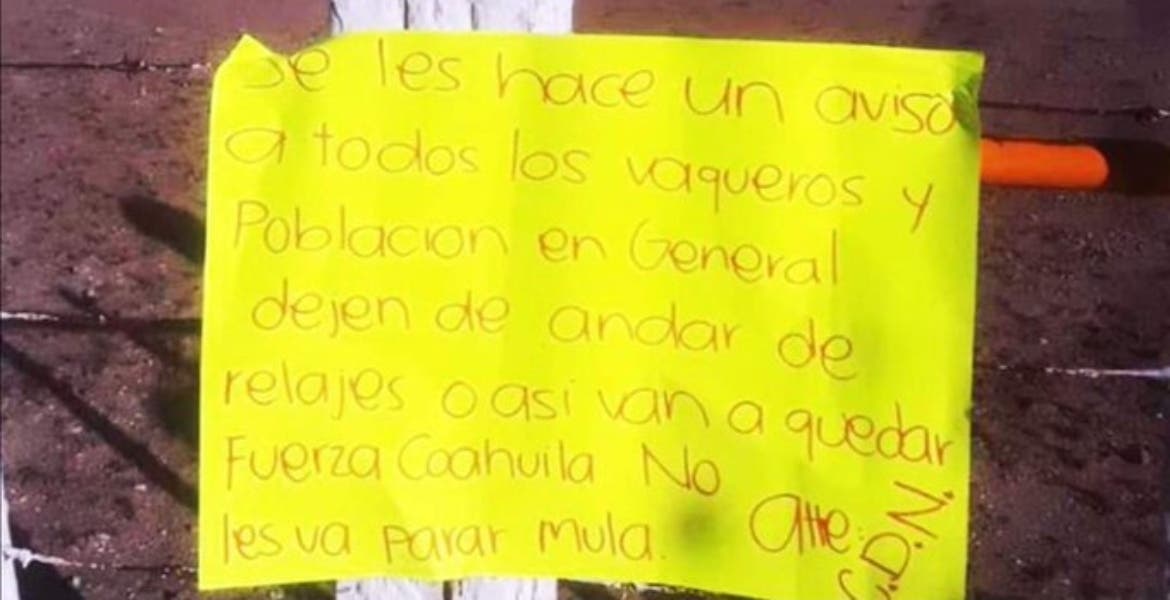 Se les hace un aviso
a todos los vaqueros y
Poblacion en General
dejen de andar de
relajes o asi van a quedar
Fuerza Coahuila No
les va parar mula. Atte:
C.D.N.